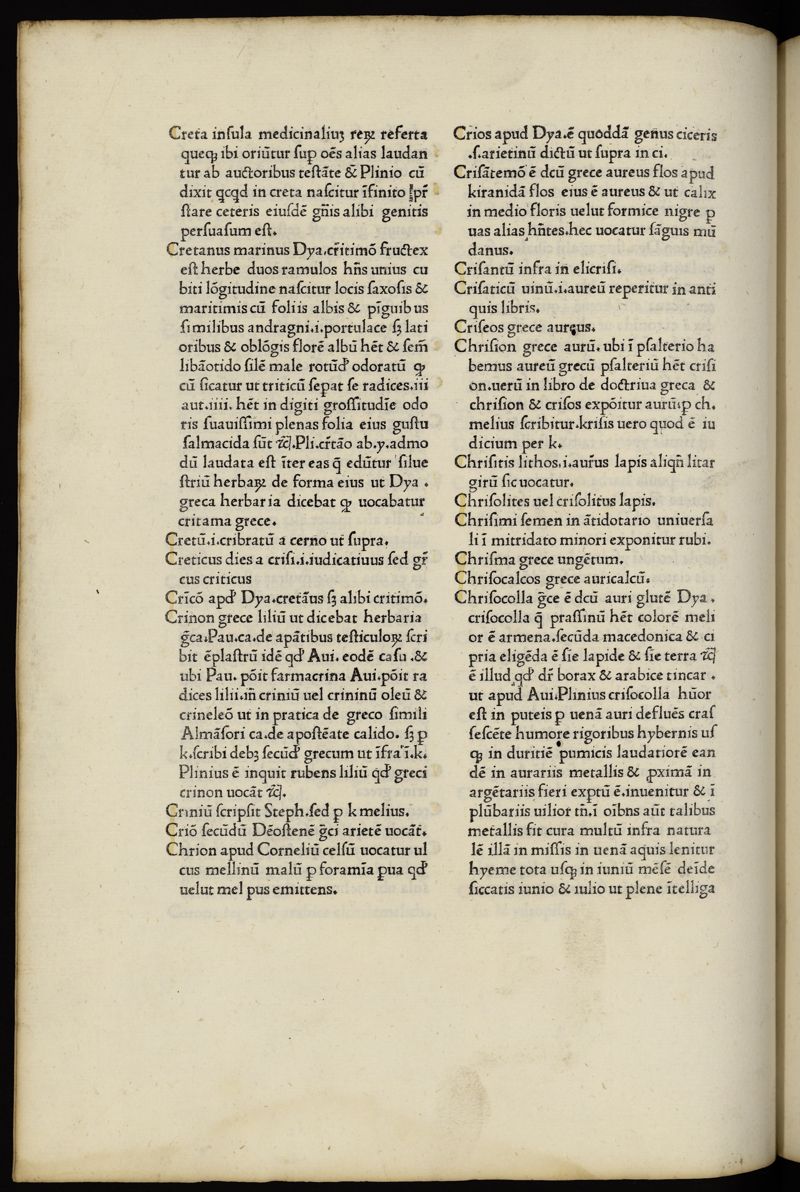 Creta inſula medicinaliuꝫ reꝝ referta
queqꝫ ibi oriūtur ſup oēs alias laudan
tur ab auctoribus teſtāte & Plinio cū
dixit qcqd in creta naſcitur īfinito pr̄
ſtare ceteris eiuſdē gn̄is alibi genitis
perſuaſum eſt.
Cretanus marinus Dya.cr̄itimō fructex
eſt herbe duos ramulos hn̄s unius cu
biti lōgitudine naſcitur locis ſaxoſis &
maritimis cū foliis albis & pīguibus
ſimilibus andragni.i.portulace ſꝫ lati
oribus & oblōgis florē albū hēt & ſem̄
libāotido ſilē male rotūdꝰ odoratū ꝙ
cū ſicatur ut triticū ſepat ſe radices.iii
aut.iiii. hēt in digiti groſſitudīe odo
ris ſuauiſſimi plenas folia eius guſtu
ſalmacida ſūt ⁊cꝭ.Pli.cr̄tāo ab.y.admo
dū laudata eſt īter eas q̄ edūtur ſilue
ſtriū herbaꝝ de forma eius ut Dya .
greca herbaria dicebat ꝙ uocabatur
critama grece.
Cretū.i.cribratū a cerno ut ſupra.
Creticus dies a criſi.i.iudicatiuus ſed gr̄
cus criticus
Crīcō apd' Dya.cretāus ſꝫ alibi critimō.
Crinon grece liliū ut dicebat herbaria
ḡca.Pau.ca.de apātibus teſticuloꝝ ſcri
bit ēplaſtrū idē qd' Aui. eodē caſu .&
ubi Pau. pōit farmacrina Aui.pōit ra
dices lilii.in̄ criniū uel crininū oleū &
crineleō ut in pratica de greco ſimili
Almāſori ca.de apoſtēate calido. ſꝫ p
k.ſcribi debꝫ ſecūd' grecum ut īfra ī.k.
Plinius ē inquit rubens liliū qd' greci
crinon uocāt ⁊cꝭ.
Criniū ſcripſit Steph.ſed p k melius.
Criō ſecūdū Dēoſtenē ḡci arietē uocāt.
Chrion apud Corneliū celſū uocatur ul
cus mellinū malū p foramīa pua qd'
uelut mel pus emittens.
Crios apud Dya.ē quoddā genus ciceris
.ſ.arietinū dictū ut ſupra in ci.
Criſātemō ē dcū grece aureus flos apud
kiranidā flos eius ē aureus & ut calix
in medio floris uelut formice nigre p
uas alias hn̄tes.hec uocatur ſāguis mū
danus.
Criſantū infra in elicriſi.
Criſaticū uinū.i.aureū reperitur in anti
quis libris.
Criſeos grece aureus.
Chriſion grece aurū. ubi ī pſalterio ha
bemus aureū grecū pſalteriū hēt criſi
on.uerū in libro de doctriua greca &
chriſion & criſos expōitur aurū.p ch.
melius ſcribitur.kriſis uero quod ē iu
dicium per k.
Chriſitis lithos.i.aur̄us lapis aliqn̄ litar
girū ſic uocatur.
Chriſolites uel criſolitus lapis.
Chriſimi ſemen in ātidotario uniuerſa
li ī mitridato minori exponitur rubi.
Chriſma grece ungētum.
Chriſocalcos grece auricalcū.
Chriſocolla ḡce ē dcū auri glutē Dya .
criſocolla q̄ praſſinū hēt colorē meli
or ē armena.ſecūda macedonica & ci
pria eligēda ē ſie lapide & ſie terra ⁊cꝭ
ē illud qd' dr̄ borax & arabice tincar .
ut apud Aui.Plinius criſocolla hūor
eſt in puteis p uenā auri defluēs craſ
ſeſcēte humore rigoribus hybernis uſ
qꝫ in duritiē pumicis laudatiorē ean
dē in aurariis metallis & ꝓximā in
argētariis fieri exptū ē.inuenitur & ī
plūbariis uilior tn̄.ī oībns aūt talibus
metallis fit cura multū infra natura
lē illā in miſſis in uenā aquis lenitur
hyeme tota uſqꝫ in iuniū mēſē deīde
ſiccatis iunio & iulio ut plene ītelliga